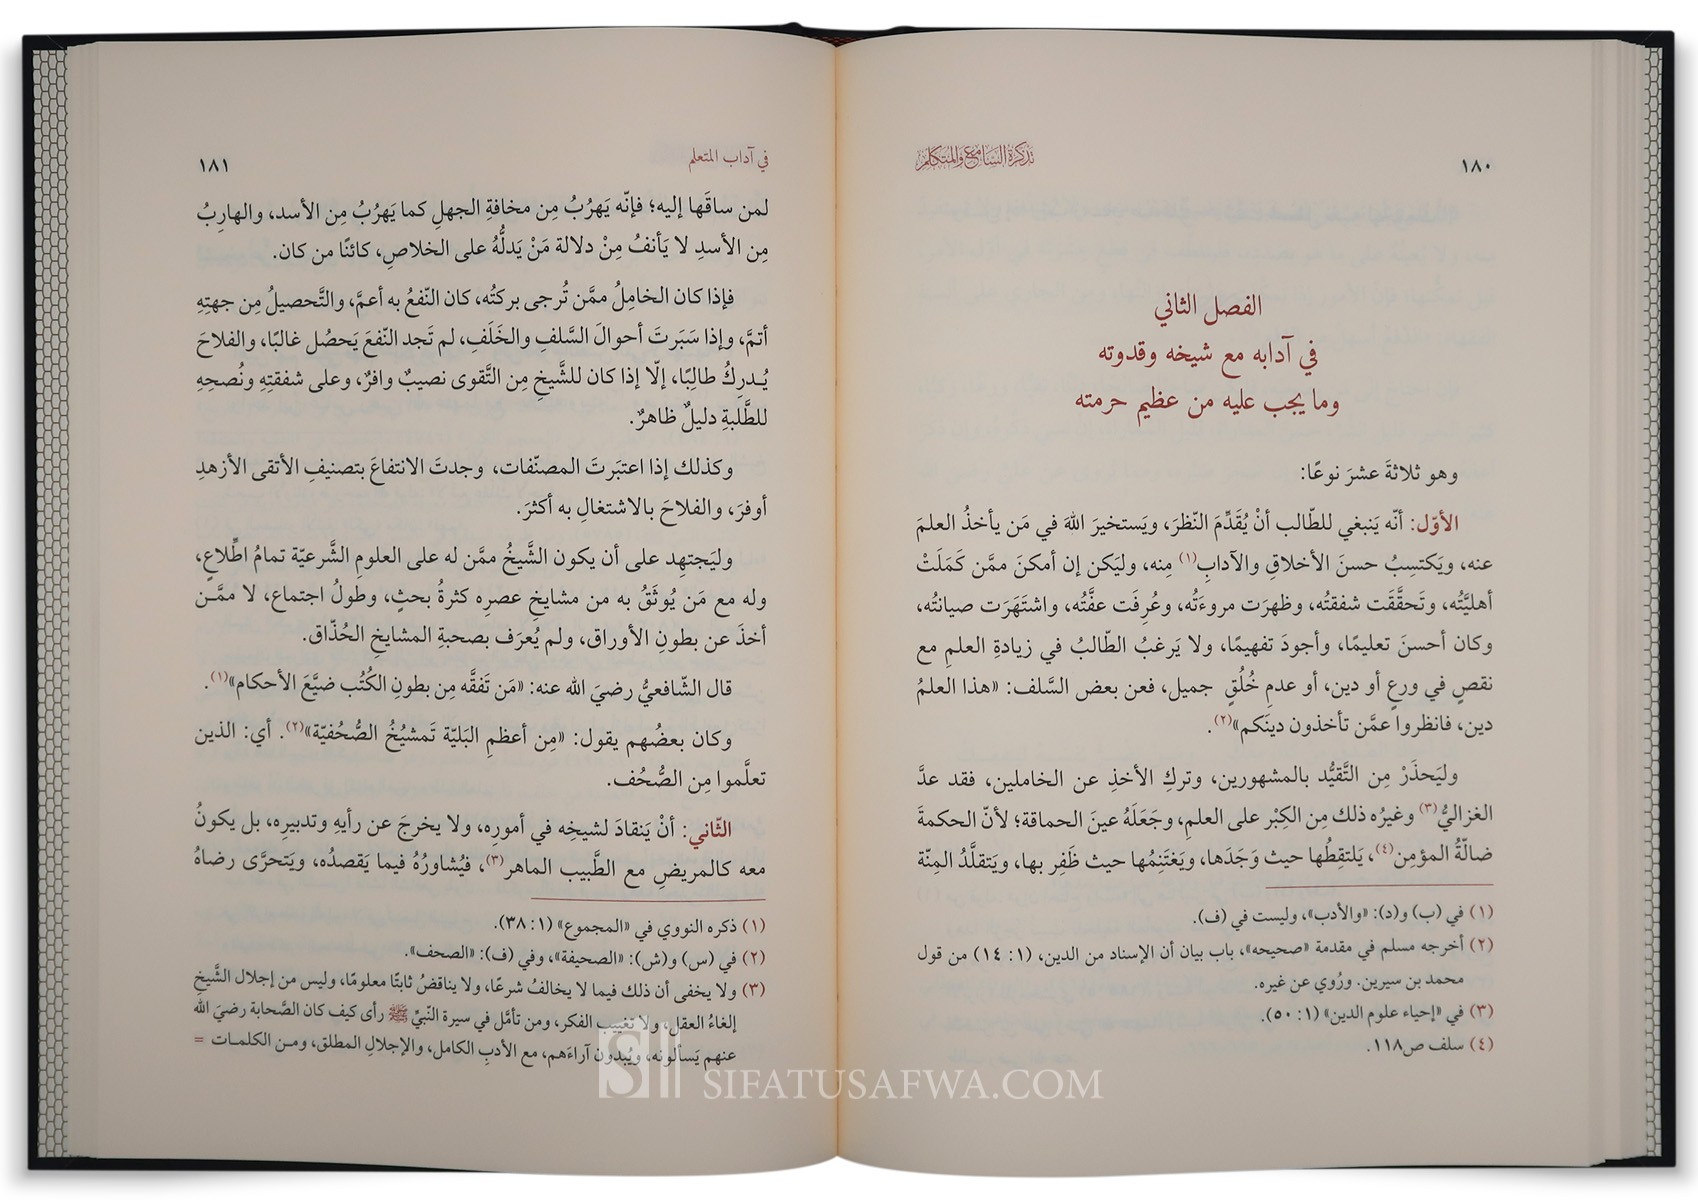 ١٨٠
تذكرة السامع والمتكلم
الفصل الثاني
في آدابه مع شيخه وقدوته
وما يجب عليه من عظيم حرمته
وهو ثلاثةَ عشرَ نوعًا:
الأوّل: أنّه يَنبغي للطّالب أنْ يُقَدِّمَ النّظرَ، ويَستخيرَ اللهَ في مَن يأخذُ العلمَ
عنه، ويَكتسِبُ حسنَ الأخلاقِ والآدابِ(١) مِنه، وليَكن إن أمكنَ ممَّن كَمَلَتْ
أهليَّتُه، وتَحقَّقَت شفقتُه، وظهرَت مروءَتُه، وعُرِفَت عفَّتُه، واشتَهَرَت صيانتُه،
وكان أحسنَ تعليمًا، وأجودَ تفهيمًا، ولا يَرغبُ الطّالبُ في زيادةِ العلمِ مع
نقصٍ في ورعٍ أو دين، أو عدمِ خُلُقٍ جميل، فعن بعض السَّلف: «هذا العلمُ
دين، فانظروا عمَّن تأخذون دينَكم»(٢).
وليَحذَرْ مِن التَّقيُّد بالمشهورين، وتركِ الأخذِ عن الخاملين، فقد عدَّ
الغزاليُّ(٣) وغيرُه ذلك مِن الكِبْر على العلمِ، وجَعَلَهُ عينَ الحماقة؛ لأنّ الحكمةَ
ضالّةُ المؤمِن(٤)، يَلتقِطُها حيث وَجَدَها، ويَغتَنِمُها حيث ظَفِر بها، ويَتقلَّدُ المِنّة
(١) في (ب) و(د): «والأدب»، وليست في (ف).
(٢) أخرجه مسلم في مقدمة «صحيحه»، باب بيان أن الإسناد من الدين، (١: ١٤) من قول
محمد بن سيرين. ورُوي عن غيره.
(٣) في «إحياء علوم الدين» (١: ٥٠).
(٤) سلف ص١١٨.
في آداب المتعلم
١٨١
لمن ساقَها إليه؛ فإنّه يَهرُبُ مِن مخافةِ الجهلِ كما يَهرُبُ مِن الأسد، والهارِبُ
مِن الأسدِ لا يَأنفُ مِنْ دلالة مَنْ يَدلُّهُ على الخلاصِ، كائنًا من كان.
فإذا كان الخامِلُ ممَّن تُرجى بركتُه، كان النّفعُ به أعمَّ، والتَّحصيلُ مِن جهتِهِ
أتمَّ، وإذا سَبَرتَ أحوالَ السَّلفِ والخَلَفِ، لم تَجد النّفعَ يَحصُل غالبًا، والفلاحَ
يُدرِكُ طالِبًا، إلّا إذا كان للشَّيخِ مِن التَّقوى نصيبٌ وافرٌ، وعلى شفقتِهِ ونُصحِهِ
للطَّلبةِ دليلٌ ظاهرٌ.
وكذلك إذا اعتبَرتَ المصنّفات، وجدتَ الانتفاعَ بتصنيفِ الأتقى الأزهدِ
أوفرَ، والفلاحَ بالاشتغالِ به أكثرَ.
وليَجتهِد على أن يكون الشَّيخُ ممَّن له على العلومِ الشَّرعيّة تمامُ اطِّلاعٍ،
وله مع مَن يُوثَقُ به من مشايخِ عصرِه كثرةُ بحثٍ، وطولُ اجتماع، لا ممَّـن
أخذَ عن بطونِ الأوراق، ولم يُعرَف بصحبةِ المشايخِ الحُذّاق.
قال الشّافعيُّ رضيَ الله عنه: «مَن تَفقَّه مِن بطونِ الكُتُب ضيَّعَ الأحكام»(١).
وكان بعضُهم يقول: «مِن أعظمِ البَليّة تَمشيُخُ الصُّحُفيّة»(٢). أي: الذين
تعلَّموا مِن الصُّحُف.
الثّاني: أنْ يَنقادَ لشيخِه في أمورِه، ولا يخرجَ عن رأيهِ وتدبيرِه، بل يكونُ
معه كالمريضِ مع الطَّبيب الماهر(٣)، فيُشاورُهُ فيما يَقصدُه، ويَتحرَّى رضاهُ
(١) ذكره النووي في «المجموع» (١: ٣٨).
(٢) في (س) و(ش): «الصحيفة»، وفي (ف): «الصحف».
(٣) ولا يخفى أن ذلك فيما لا يخالفُ شرعًا، ولا يناقضُ ثابتًا معلومًا، وليس من إجلال الشَّيخِ
إلغاءُ العقل، ولا تغييب الفكر، ومن تأمَّل في سيرة النّبيِّ ﷺ رأى كيف كان الصَّحابة رضيَ الله
عنهم يَسألونه، ويُبدون آراءَهم، مع الأدبِ الكامل، والإجلالِ المطلق، ومـن الكلمـات =
SIFATUSAFWA.COM